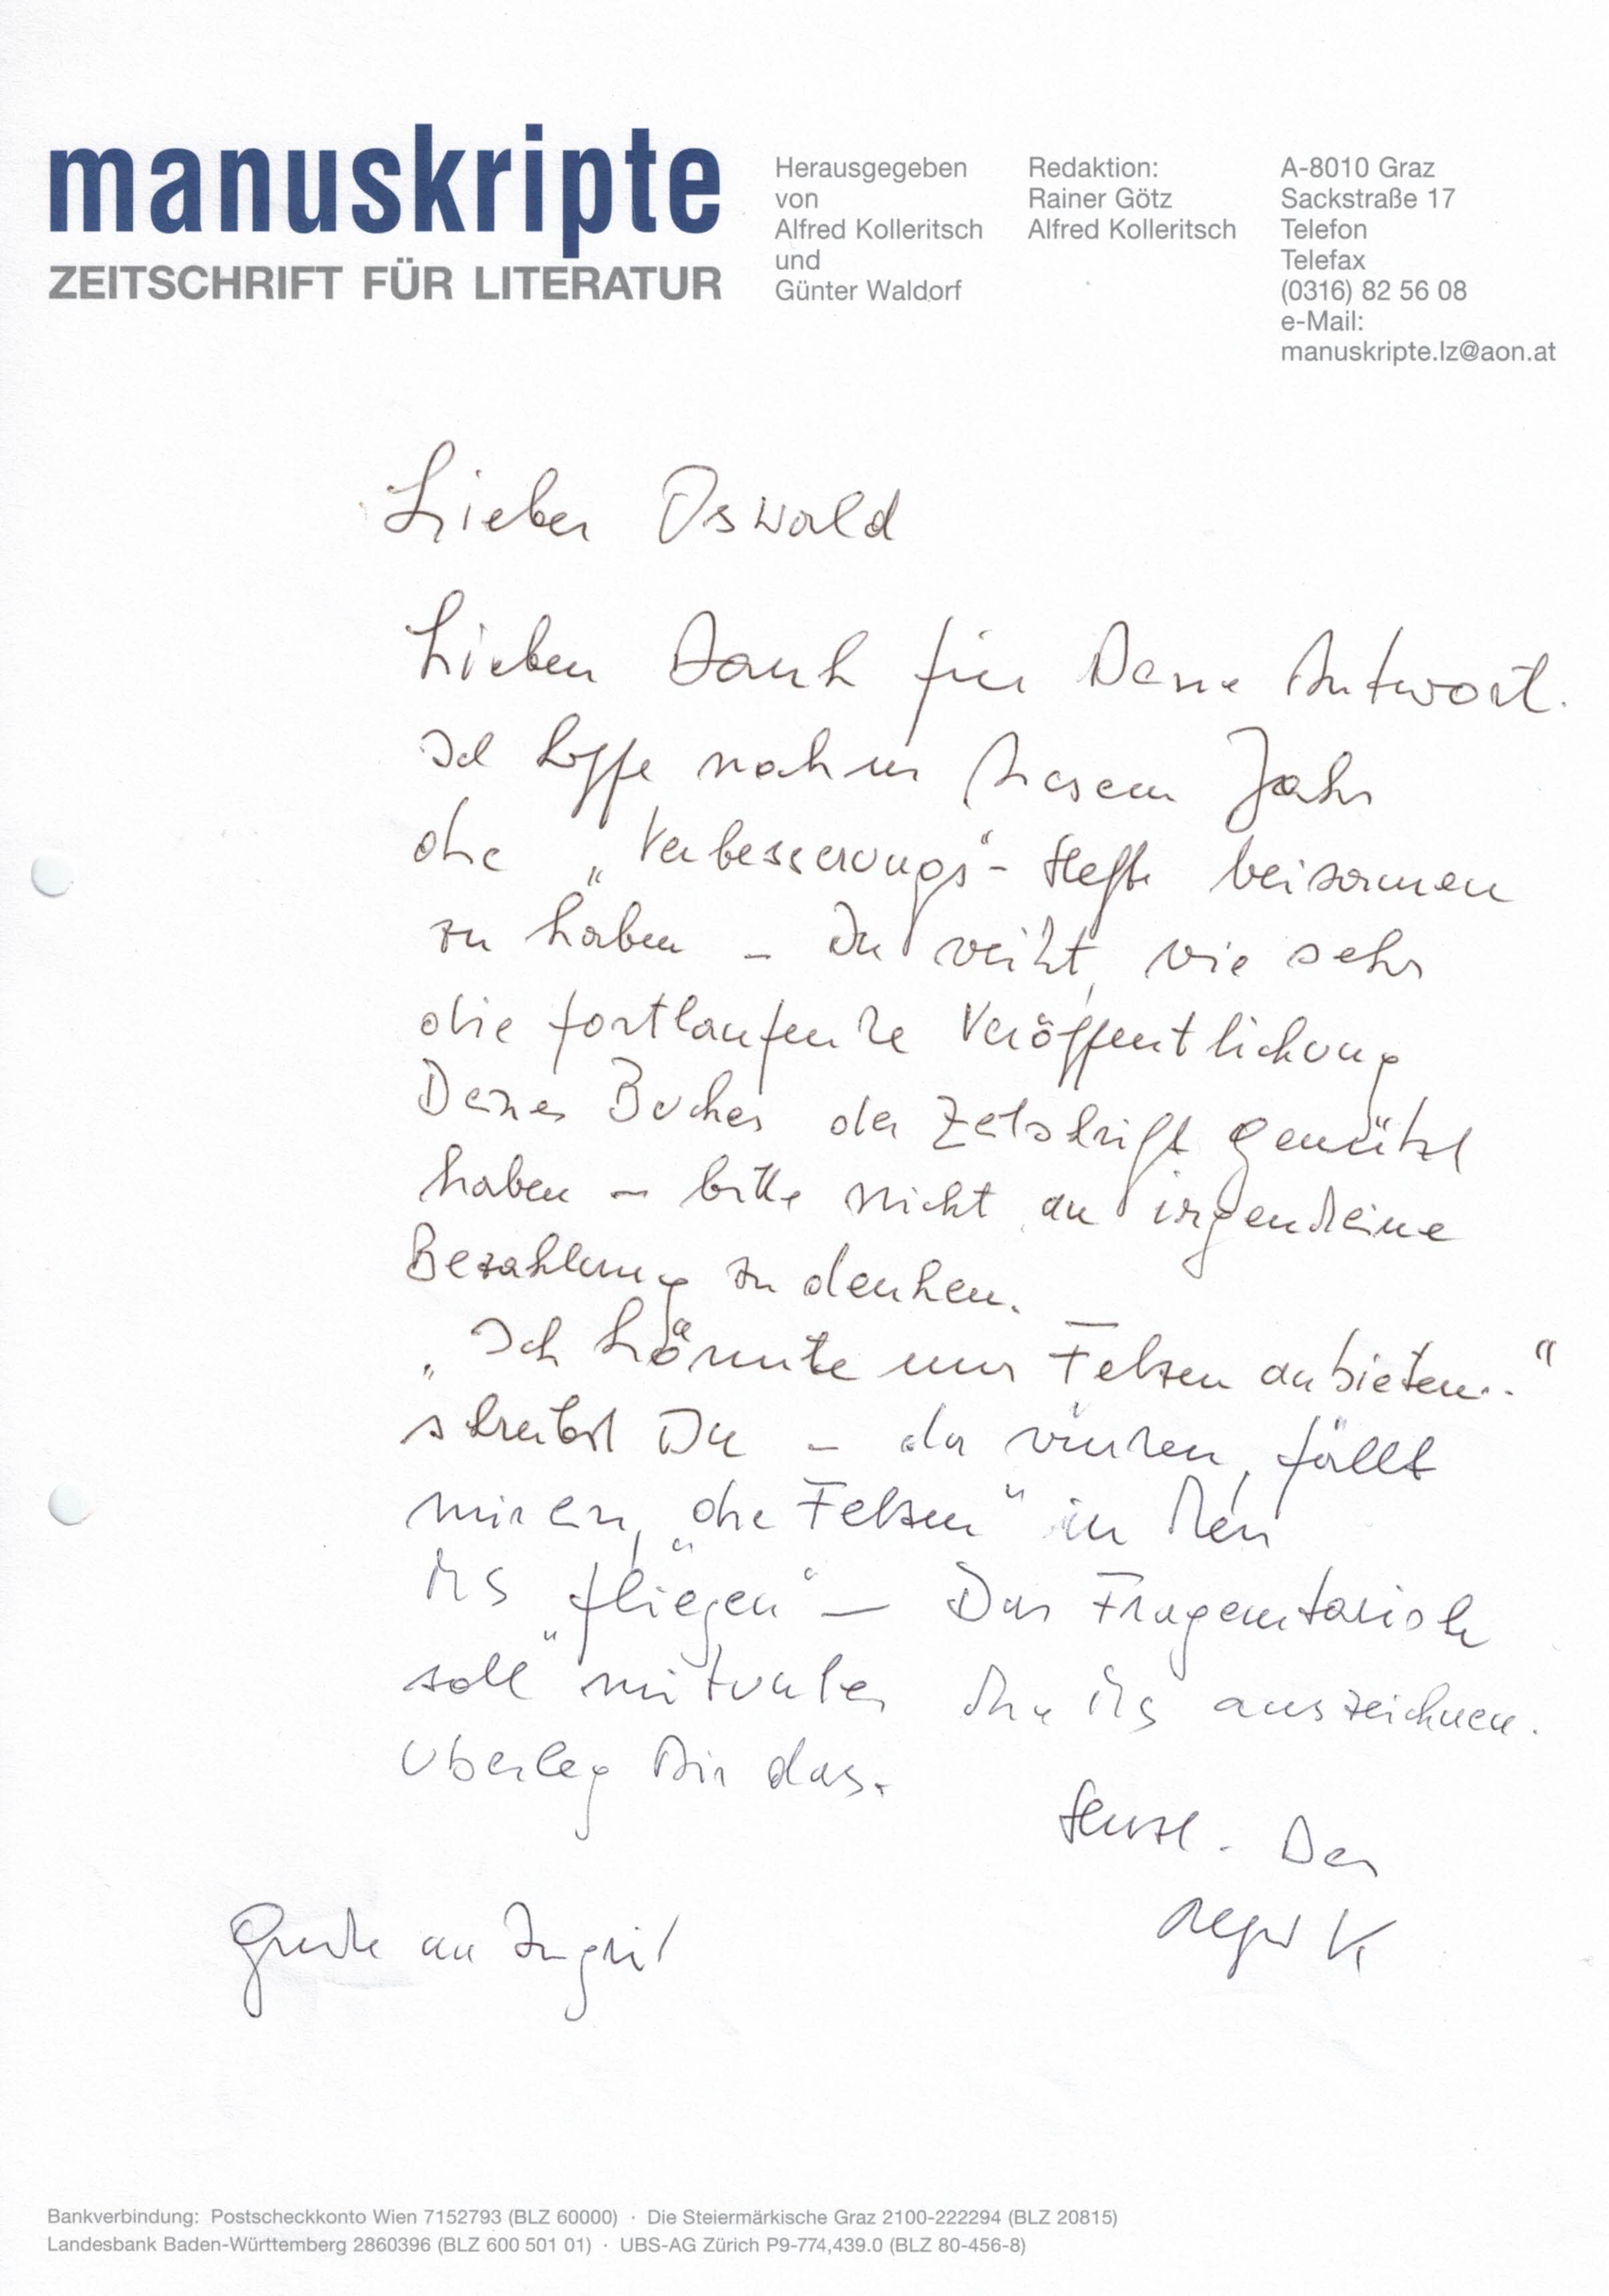 manuskripte
ZEITSCHRIFT FÜR LITERATUR
Herausgegeben
von
Alfred Kolleritsch
und
Günter Waldorf
Redaktion:
Rainer Götz
Alfred Kolleritsch
A-8010 Graz
Sackstraße 17
Telefon
Telefax
(0316) 82 56 08
e-Mail:
manuskripte.lz@aon.at
Lieber Oswald
Lieben Dank für Deine Antwort.
Ich hoffe noch in diesem Jahr
die „Verbesserungs“- Hefte beisammen
zu haben – Du weißt, wie sehr
die fortlaufende Veröffentlichung
Deines Buches der Zeitschrift genützt
haben – bitte nicht an irgendeine
Bezahlung zu denken. –
„Ich könnte nur Fetzen anbieten..“
schreibst Du – da würden, fällt
mir ein, „die Fetzen“ in den
ms „fliegen“ – Das Fragmentarische
soll mitunter die ms auszeichnen.
Überleg Dir das.
Herzl. Dein
Alfred K.
Grüße an Ingrid
Bankverbindung: Postscheckkonto Wien 7152793 (BLZ 60000) · Die Steiermärkische Graz 2100-222294 (BLZ 20815)
Landesbank Baden-Württemberg 2860396 (BLZ 600 501 01) · UBS-AG Zürich P9-774,439.0 (BLZ 80-456-8)